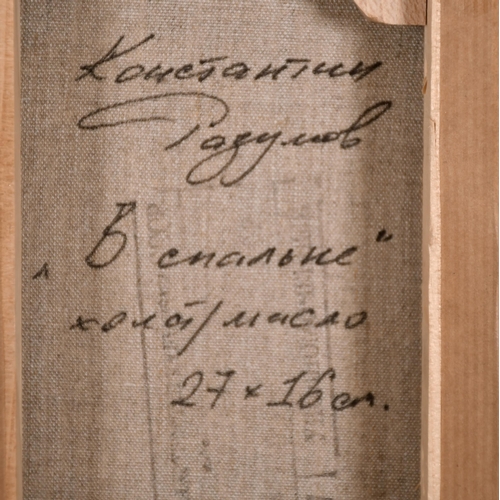 Константин
Разумов
„В спальне“
холст/масло
27 × 16 см.